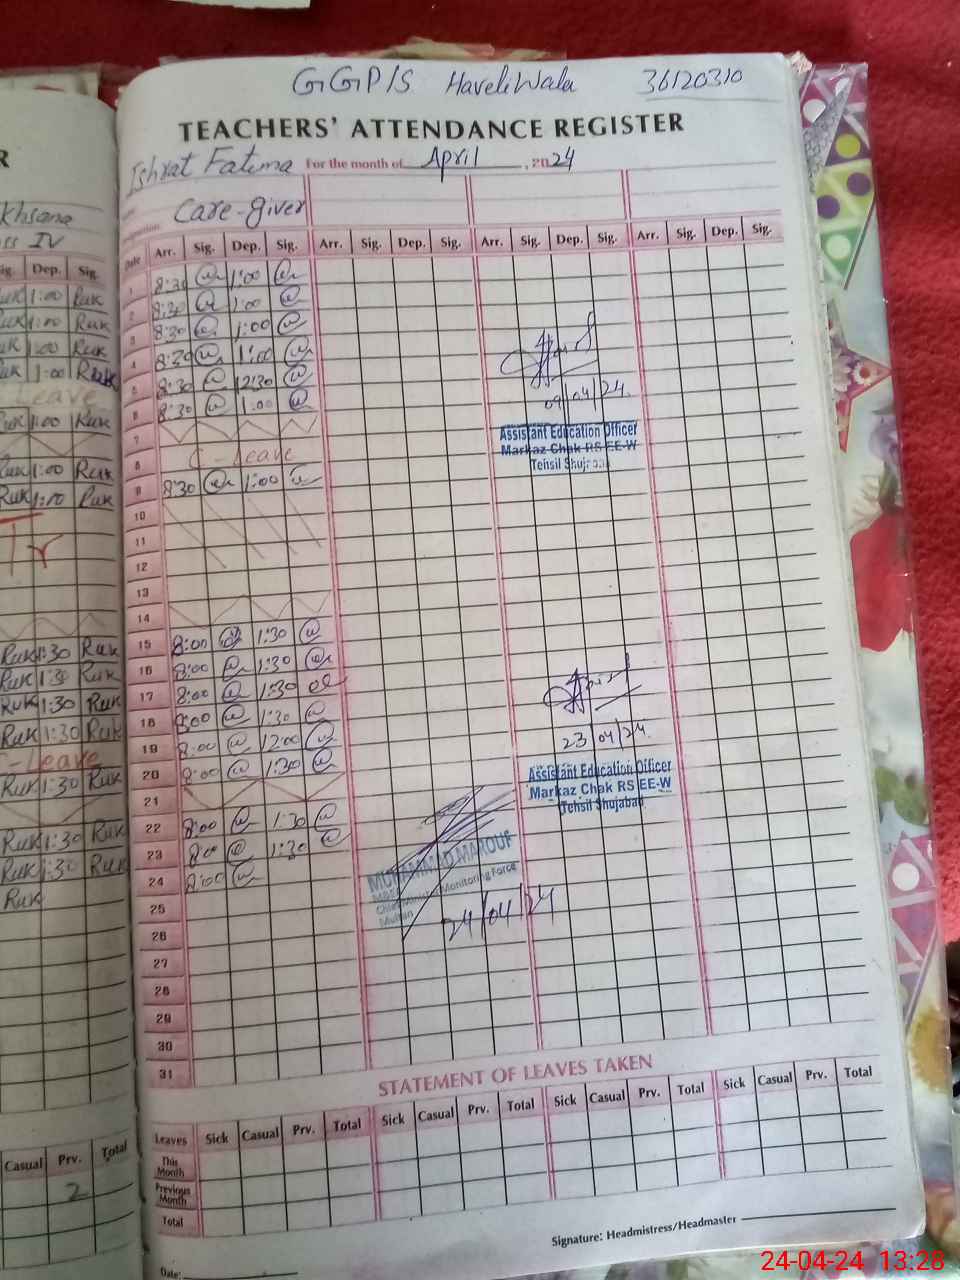 GGPS Haveli Wala 36120310
TEACHERS' ATTENDANCE REGISTER
Ishrat Fatima For the month of April, 2024
Care-giver
Date Arr. Sig. Dep. Sig. Arr. Sig. Dep. Sig. Arr. Sig. Dep. Sig. Arr. Sig. Dep. Sig.
1 8:30 1:00
2 8:30 1:00
3 8:30 1:00
4 8:30 1:00
5 8:30 12:30
6 8:30 1:00
09/04/24
7
Assistant Education Officer
Markaz Chak RS EE-W
Tehsil
8 C-Leave
9 8:30 1:00
10
11
12
13
14
15 8:00 1:30
16 8:00 1:30
17 8:00 1:30
18 8:00 1:30
19 8:00 12:00
23/04/24
20 8:00 1:30
Assistant Education Officer
Markaz Chak RS EE-W
Tehsil Shujabad
21
22 8:00 1:30
23 8:00 1:30
24 8:00
MUHAMMAD MAROUF
Chief Minister Monitoring Force
Multan
24/04/24
25
26
27
28
29
30
31
STATEMENT OF LEAVES TAKEN
Leaves Sick Casual Prv. Total Sick Casual Prv. Total Sick Casual Prv. Total Sick Casual Prv. Total
This Month
Previous Month
Total
Signature: Headmistress/Headmaster
Date:
R
IV
Sig. Dep. Sig.
Ruk 1:00 Ruk
Ruk 1:00 Ruk
Ruk 1:00 Ruk
Ruk 1:00 Ruk
Leave
Ruk 1:00 Ruk
Ruk 1:00 Ruk
Ruk 1:00 Ruk
Tr
Ruk 1:30 Ruk
Ruk 1:30 Ruk
Ruk 1:30 Ruk
Ruk 1:30 Ruk
C-Leave
Ruk 1:30 Ruk
Ruk 1:30 Ruk
Ruk 1:30 Ruk
Ruk
Casual Prv. Total
2
24-04-24 13:28